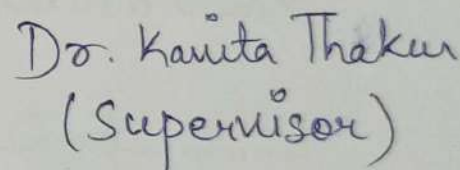 Dr. Kavita Thakur
(Supervisor)